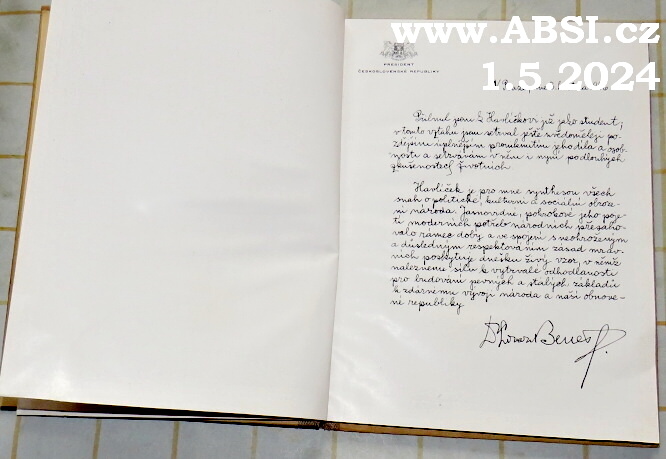 www.ABSI.cz
1.5.2024
PRESIDENT
ČESKOSLOVENSKÉ REPUBLIKY
Přilnul jsem k Havlíčkovi již jako student;
v tomto vztahu jsem setrval ještě svědoměleji po
pozdějším úplnějším proniknutím jeho díla a osob-
nosti a setrvávám v něm i nyní po dlouhých
zkušenostech životních.
Havlíček je pro mne synthesou všech
snah o politické, kulturní a sociální obroze-
ní národa. Jasnovidné, pokrokové jeho poje-
tí moderních potřeb národních přesaho-
valo rámec doby a ve spojení s neohroženým
a důsledným respektováním zásad mrav-
ních poskytuje dnešku živý vzor, v němž
nalezneme sílu k vytrvalé odhodlanosti
pro budování pevných a stálých základů
k zdárnému vývoji národa a naší obnove-
né republiky.
Dr Edvard Beneš